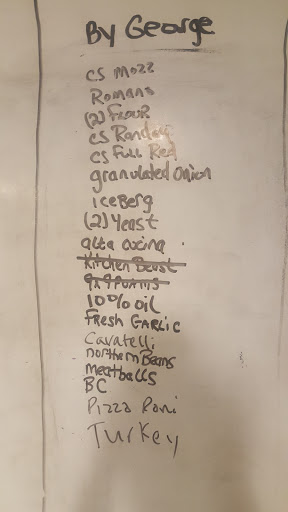 By George
CS Mozz
Romano
(2) Flour
CS Randay
CS Full Red
granulated onion
iceBerg
(2) Yeast
alta cucina
Kitchen Beast
9x9 Forms
10% oil
Fresh Garlic
Cavatelli
northern Beans
meatballs
BC
Pizza Roni
Turkey